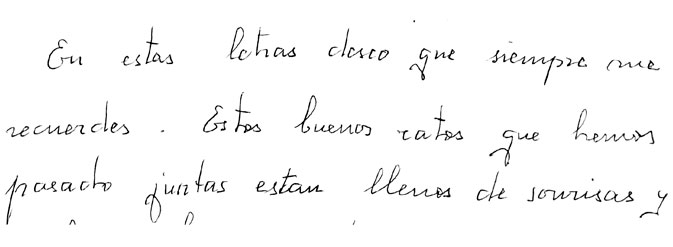 En estas letras deseo que siempre me
recuerdes. Estos buenos ratos que hemos
pasado juntas estan llenos de sonrisas y